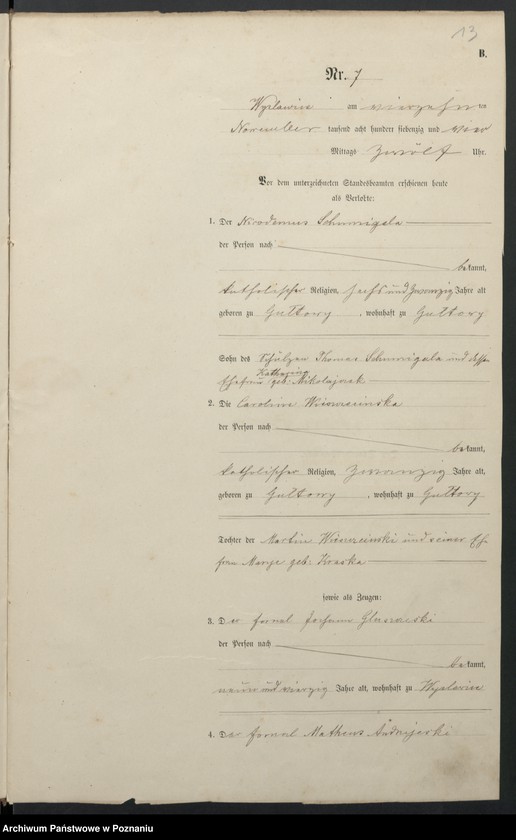 13
B.
Nr. 7
Wyslawice am vierzehn ten
November tausend acht hundert siebenzig und vier
Mittags Zwölf Uhr.
Vor dem unterzeichneten Standesbeamten erschienen heute
als Verlobte:
1. Der Nicodemus Schumigala
der Person nach
bekannt,
katholischer Religion, sechs und zwanzig Jahre alt
geboren zu Gultowy, wohnhaft zu Gultowy
Sohn des Thomas Schumigala und
Katharina
Ehefrau geb: Mikolajczak
2. Die Caroline
der Person nach
bekannt,
katholischer Religion, zwanzig Jahre alt,
geboren zu Gultowy, wohnhaft zu Gultowy
Tochter der Martin und seiner Ehe-
frau geb: Kraska
sowie als Zeugen:
3. Der fornal
der Person nach
bekannt,
neun und vierzig Jahre alt, wohnhaft zu Wyslawice
4. Der fornal Matheus
Archiwum Państwowe w Poznaniu